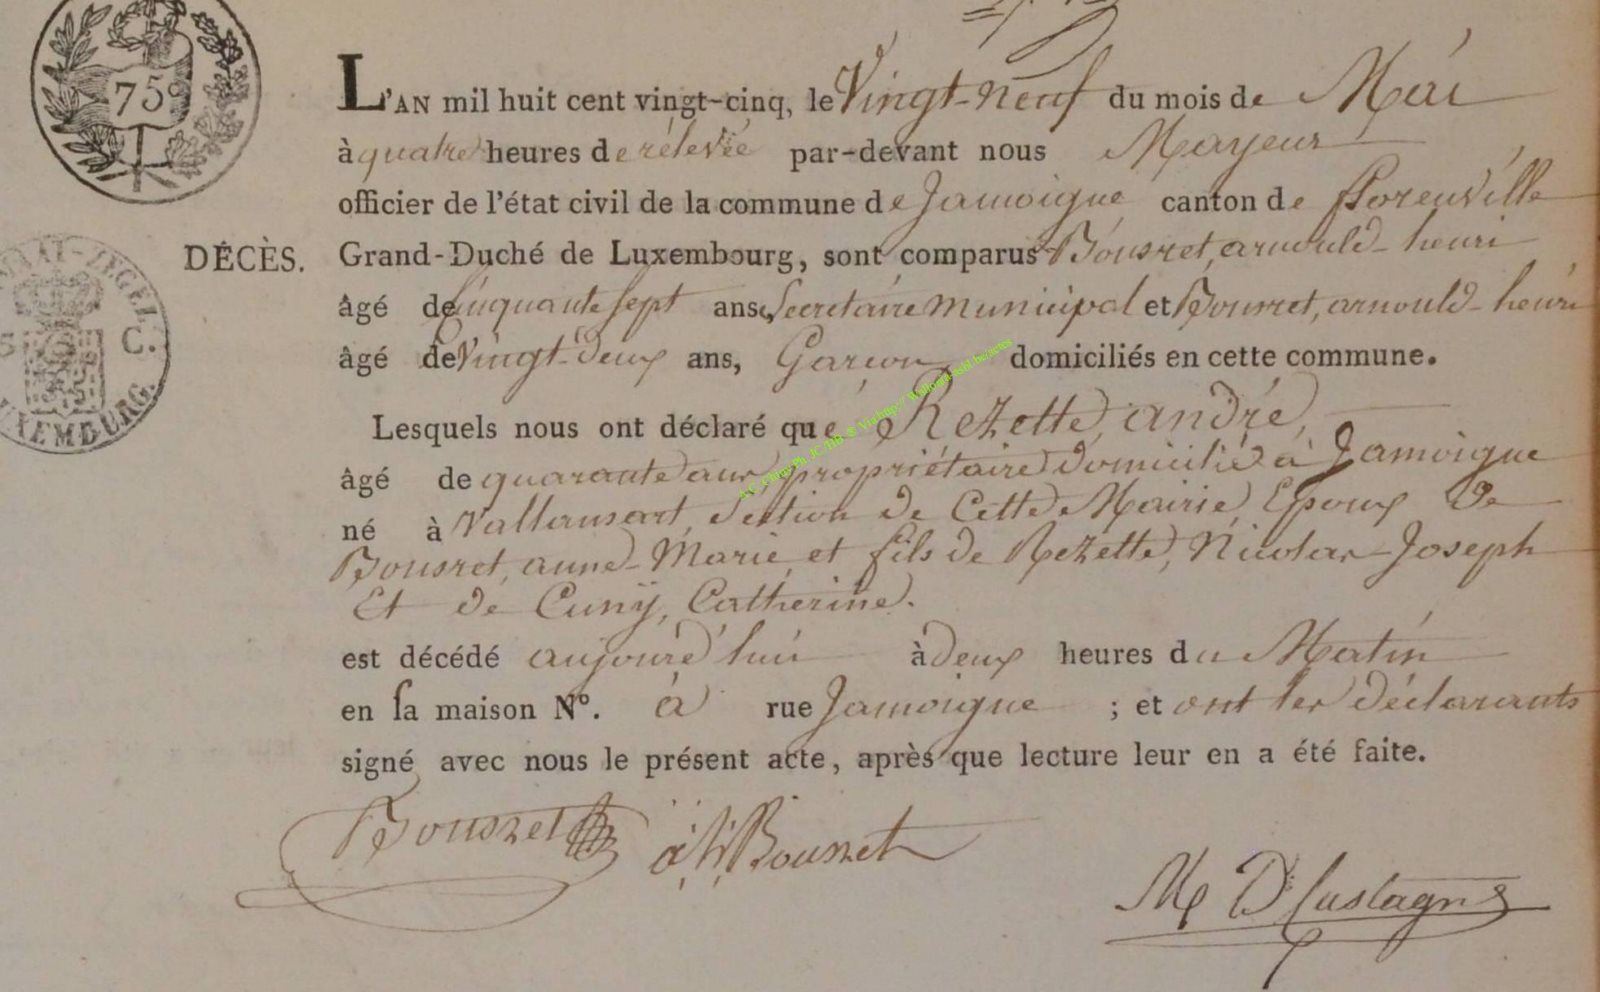 75c
L'AN mil huit cent vingt-cinq, le Vingt-neuf du mois de Mai
à quatre heures de rélevée par-devant nous Mayeur
officier de l'état civil de la commune de Jamoigne canton de florenville
DÉCÈS. Grand-Duché de Luxembourg, sont comparus Bousret, arnould-henri
âgé de Cinquante sept ans, Secretaire Municipal et Bousret, arnould-henri
âgé de Vingt-deux ans, Garçon domiciliés en cette commune.
C.
LUXEMBURG.
Lesquels nous ont déclaré que Rezette, andré,
âgé de quarante ans, propriétaire domicilié à Jamoigne
né à Vallansart, Section de Cette Mairie, Epoux de
Bousret, anne-Marie, et fils de Rezette, Nicolas-Joseph
Et de Cunÿ, Catherine.
est décédé aujourd'hui à deux heures du Matin
en sa maison Nº. à rue Jamoigne ; et ont les déclarants
signé avec nous le présent acte, après que lecture leur en a été faite.
Bousret a: h: Bousret